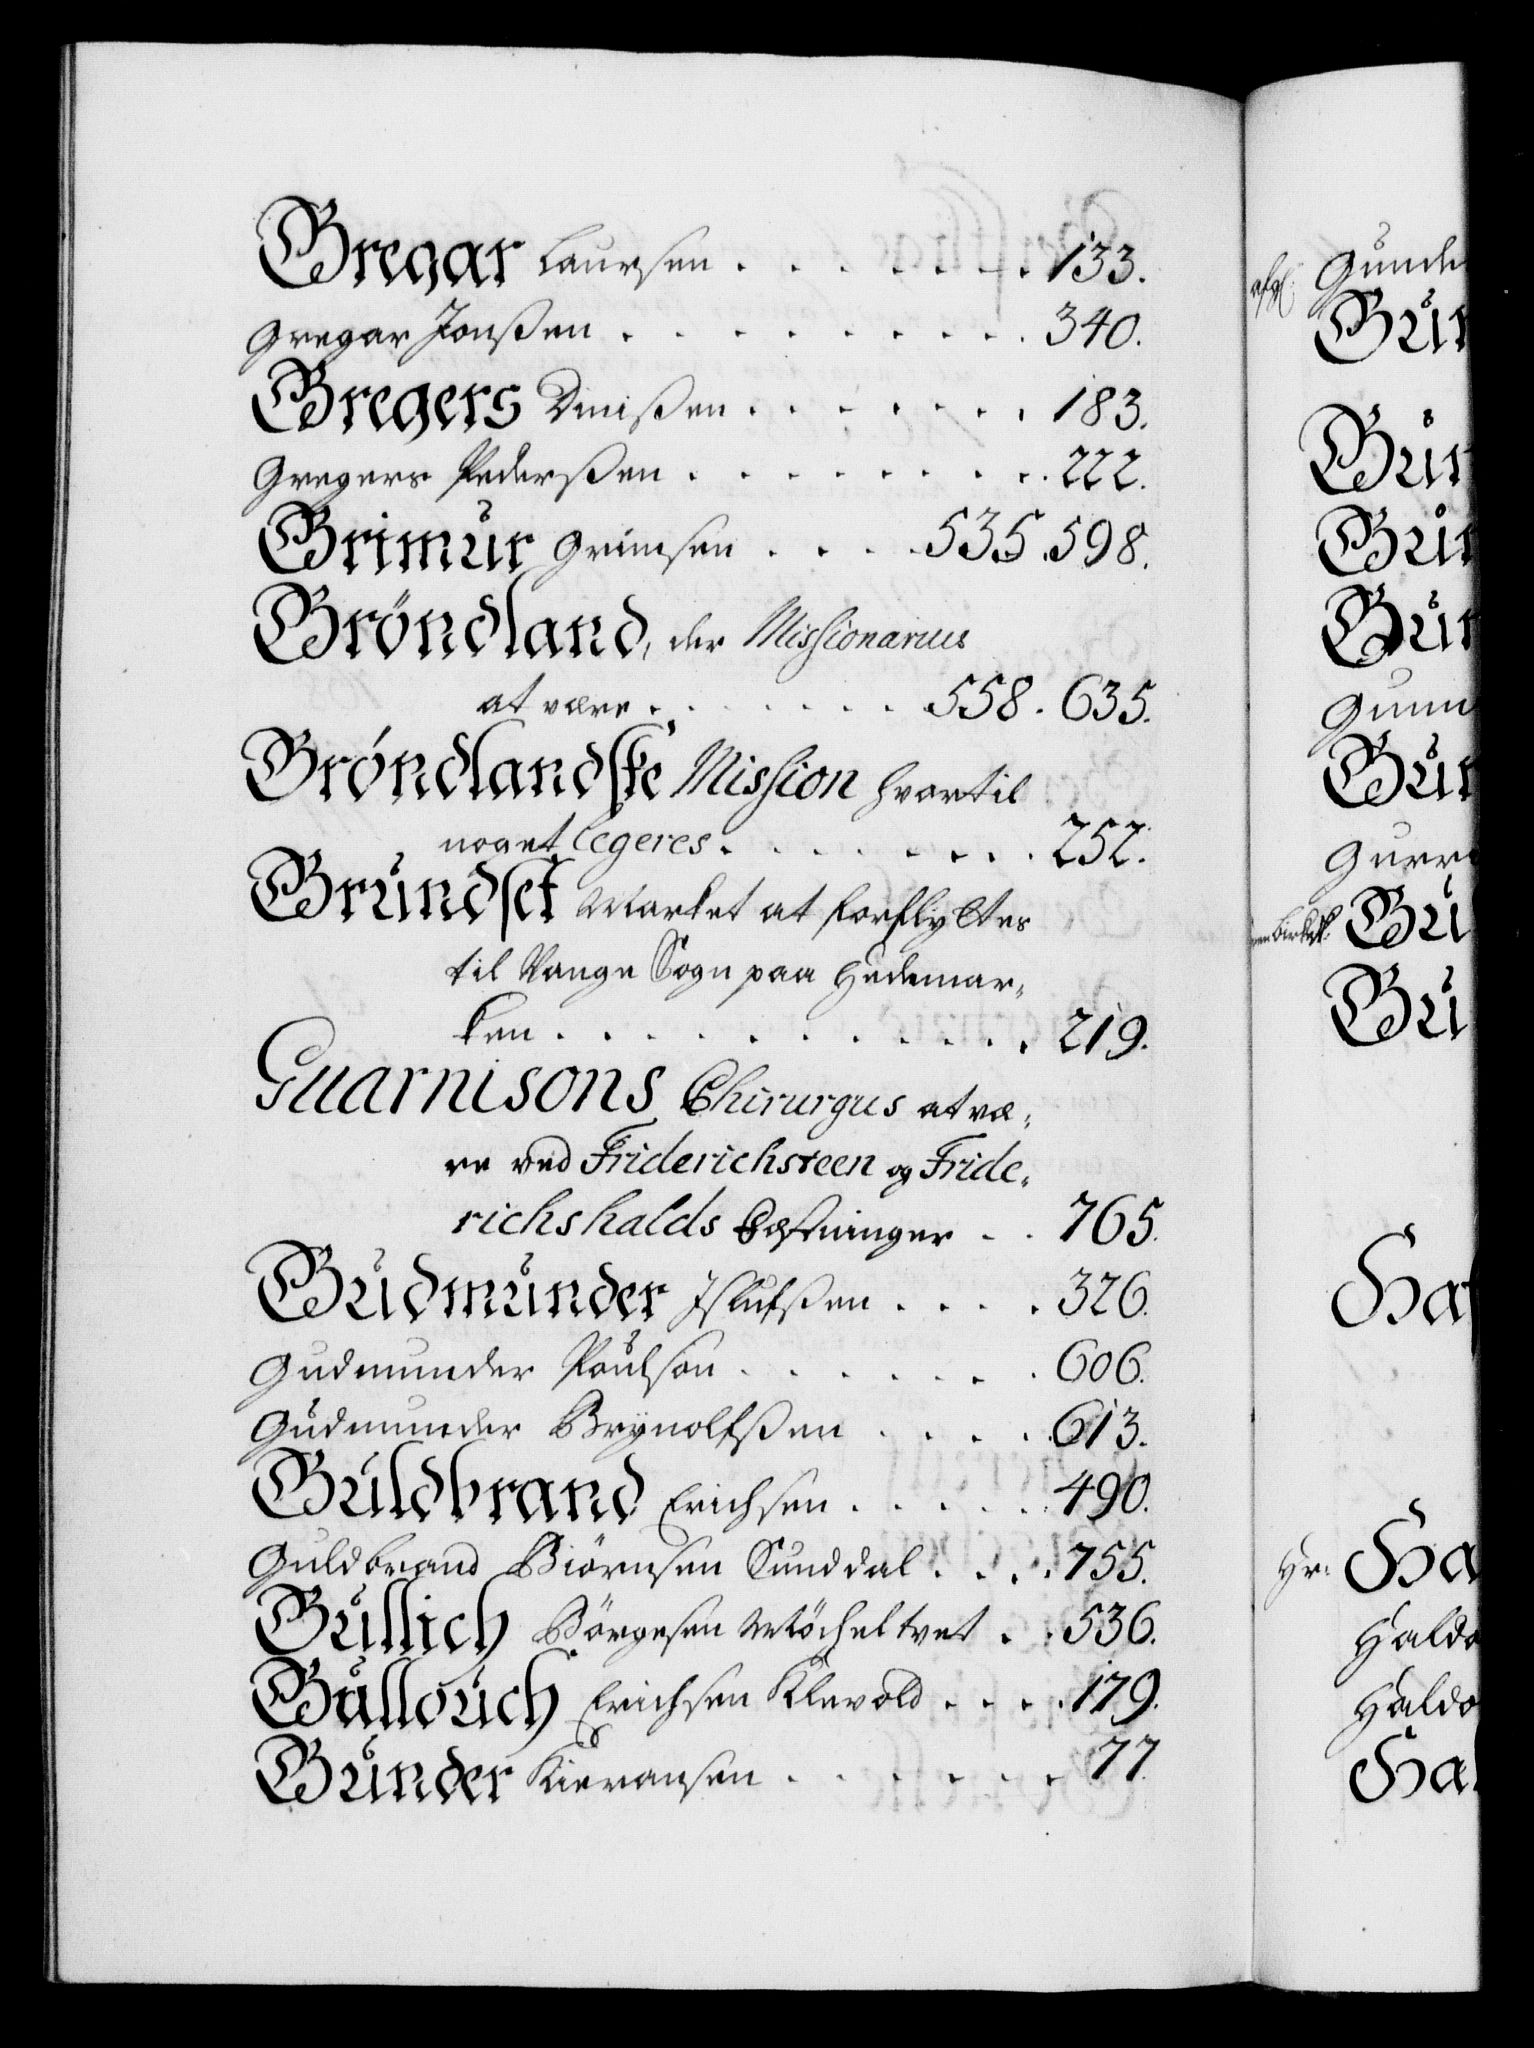 Gregar Laursen . . . . . . . 133.
Gregar Jonßen . . . . . . . . . 340.
Gregers Dinißen . . . . . . . 183.
Gregers Pederßen . . . . . . . . 222.
Grimur Grimsen . . . . 535. 598.
Gröndland, der Missionarius
at være . . . . . . . 558. 635.
Gröndlandske Mission hvortil
noget legeres . . . . . . . . 252.
Grundset Market at forflyttes
til Vange Sogn paa Hedemar-
ken . . . . . . . . . . . 219.
Guarnisons Chirurgus at væ-
re ved Friderichsteen og Fride-
richshalds Fæstninger . . 765.
Gudmunder Islufßen . . . . 326.
Gudmunder Poulson . . . . . . . 606.
Gudmunder Brynolfßen . . . . . 613.
Guldbrand Erichsen . . . . . . 490.
Guldbrand Biörnsen Sunddal . . . . 755.
Gullich Börgesen Möcheltvet . . . 536.
Gullouch Erichsen Klevold . . . . 179.
Gunder Kieransen . . . . . . . 77.
Gunde
Gur
Gur
Gur
Gur
Gunn
Gur
Gurr
Gu
Gu
Haf
Hr: Ha
Haldo
Haldo
Hal